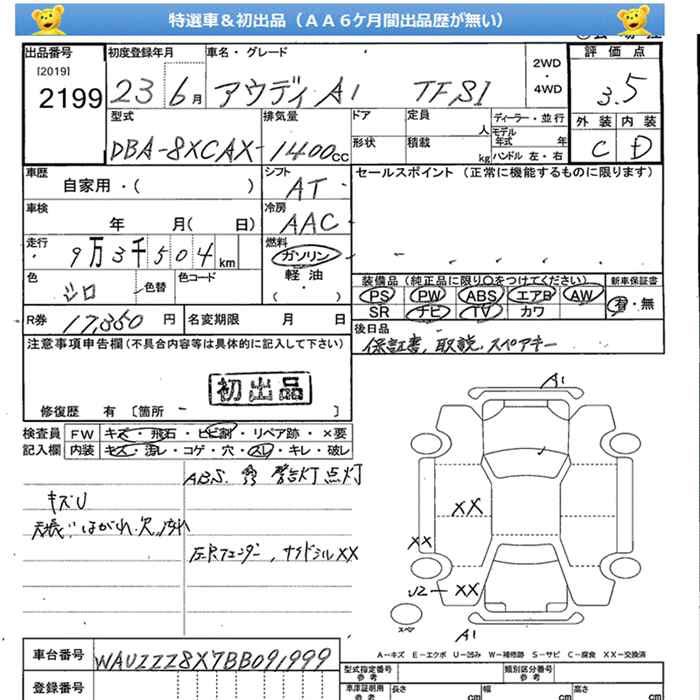 特選車＆初出品（ＡＡ６ケ月間出品歴が無い）
出品番号 [2019] 2199
初度登録年月 23 6月
車名・グレード アウディ A1 TFSI
2WD・4WD
評価点 3.5
外装 内装
C D
型式 DBA-8XCAX-
排気量 1400cc
ドア 形状
定員 人
積載 kg
ディーラー・並行
モデル年式 年
ハンドル 左・右
車歴 自家用・( )
シフト AT
セールスポイント（正常に機能するものに限ります）
車検 年 月( 日)
冷房 AAC
走行 9万3千504km
燃料 ガソリン・軽油・( )
色 シロ 色替 色コード
装備品（純正品に限り○をつけてください）
新車保証書
PS PW ABS エアB AW
SR ナビ TV カワ
有・無
R券 17,350 円
名変期限 月 日
後日品
保証書、取説、スペアキー
注意事項申告欄（不具合内容等は具体的に記入して下さい）
初出品
修復歴 有 〔箇所 〕
検査員記入欄
FW キズ・飛石・ヒビ割・リペア跡・×要
内装 キズ・汚レ・コゲ・穴・スレ・キレ・破レ
ABS 警告灯点灯
キズU
天張はがれ、欠、汚れ
左Rフェンダー、サイドシルXX
A1
XX
XX
U2 XX
スペア
A1
A－キズ E－エクボ U－凹み W－補修跡 S－サビ C－腐食 XX－交換済
車台番号 WAUZZZ8X7BB091999
登録番号
型式指定番号 参考
類別区分番号 参考
車庫証明用 参考
長さ cm
幅 cm
高さ cm